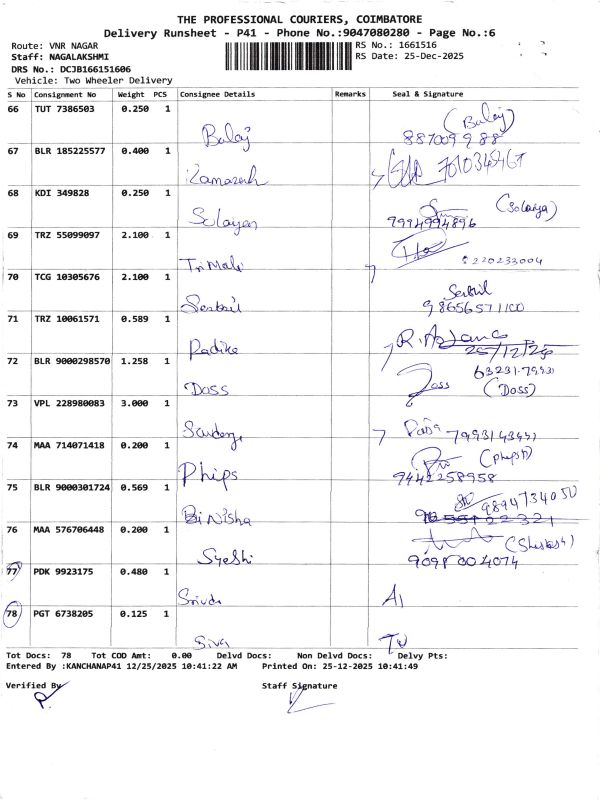 THE PROFESSIONAL COURIERS, COIMBATORE
Delivery Runsheet - P41 - Phone No.:9047080280 - Page No.:6
Route: VNR NAGAR
RS No.: 1661516
Staff: NAGALAKSHMI
RS Date: 25-Dec-2025
DRS No.: DCJB166151606
Vehicle: Two Wheeler Delivery
S No Consignment No Weight PCS Consignee Details Remarks Seal & Signature
66 TUT 7386503 0.250 1
Balaj (Balaj)
67 BLR 185225577 0.400 1
68 KDI 349828 0.250 1
Solayan (Solaiya)
7994994896
69 TRZ 55099097 2.100 1
TriMale
:220233004
70 TCG 10305676 2.100 1
71 TRZ 10061571 0.589 1
Radike
25/12/25
72 BLR 9000298570 1.258 1
Doss (Doss)
73 VPL 228980083 3.000 1
74 MAA 714071418 0.200 1
Phips
9442258958
75 BLR 9000301724 0.569 1
BiNisha
9894734050
76 MAA 576706448 0.200 1
Syeshi
9098004074
77 PDK 9923175 0.480 1
78 PGT 6738205 0.125 1
Siva
Tot Docs: 78 Tot COD Amt: 0.00 Delvd Docs: Non Delvd Docs: Delvy Pts:
Entered By :KANCHANAP41 12/25/2025 10:41:22 AM Printed On: 25-12-2025 10:41:49
Verified By Staff Signature